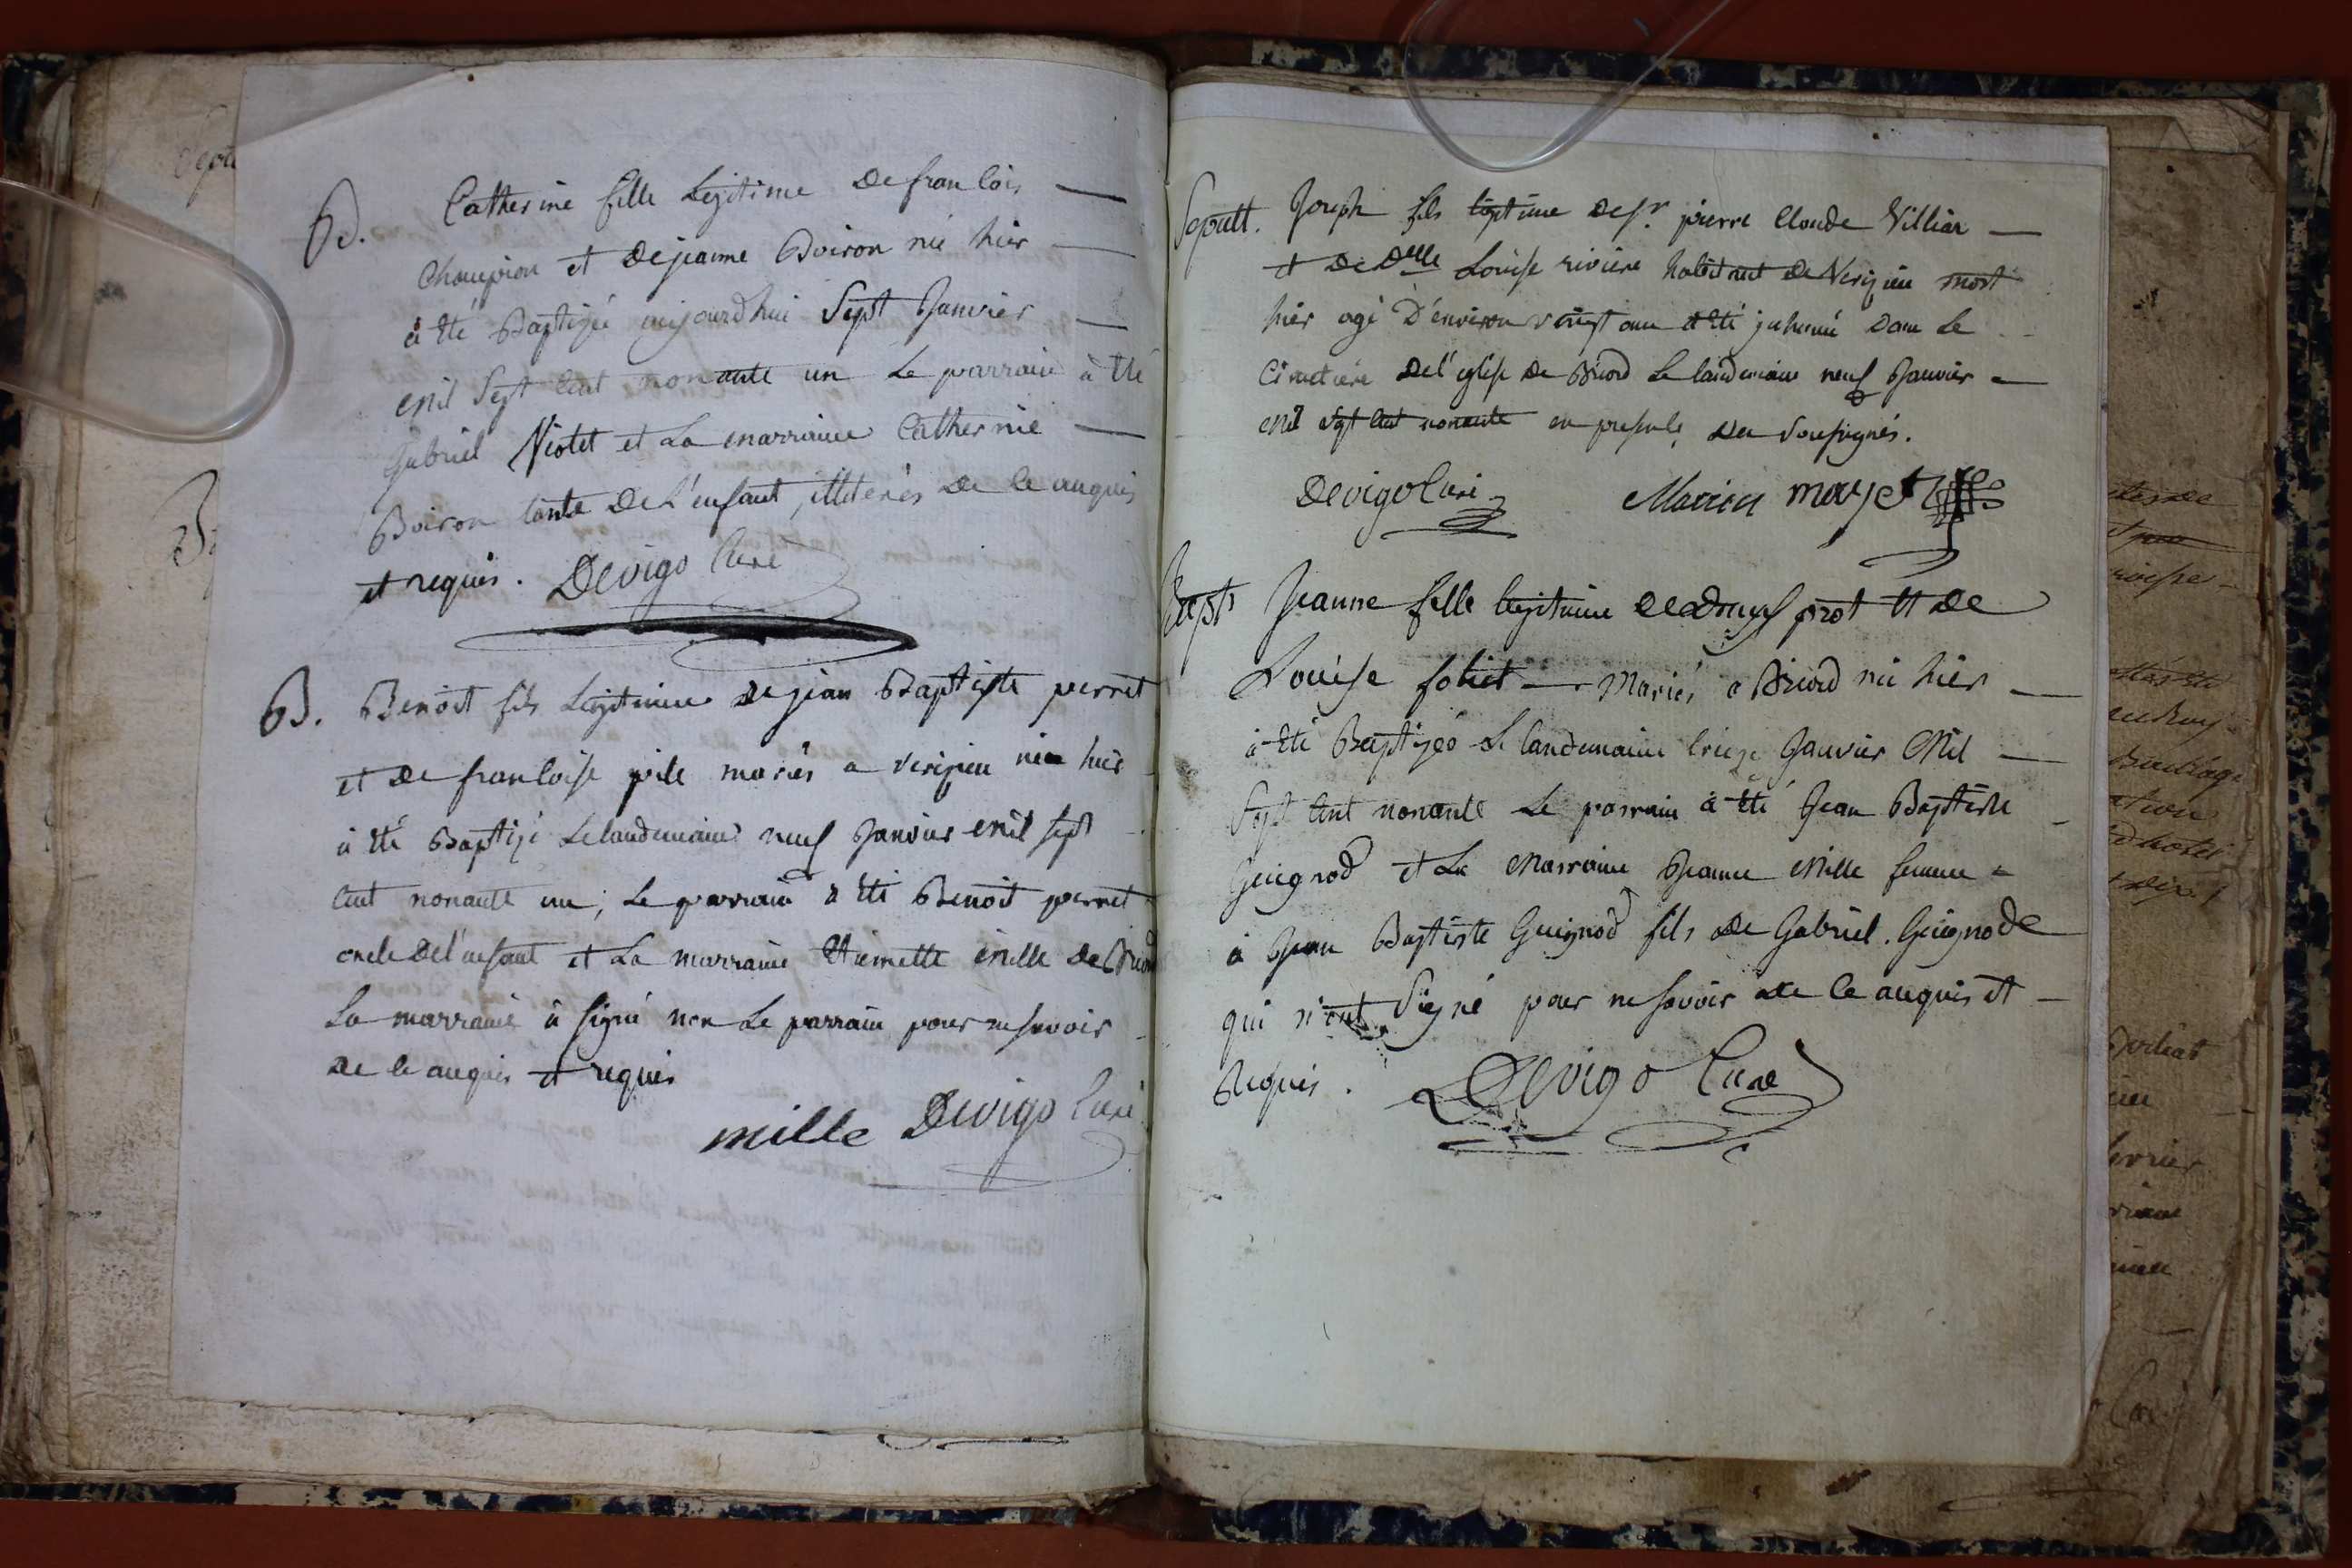 B. Catherine fille Legitime de francois
Champion et de jeanne Boiron née hier
à été Baptizée aujourdhui Sept Janvier
mil Sept cent nonante un Le parrain à été
Gabriel Violet et La marraine Catherine
Boiron tante de L'enfant, illiterés de ce anquis
et requis. Devigo Curé
B. Benoit fils Legitime de jean Baptiste perret
et de francoise pile mariés a verizieu né hier
à été Baptizé Le landemain neuf Janvier mil sept
cent nonante un, Le parrain à été Benoit perret
oncle de l'enfant et La marraine Etiennette mille de Briord
La marraine à signé non Le parrain pour ne savoir
de ce anquis et requis
mille Devigo Curé
Sepult. Joseph fils legitime de Sr. pierre Claude Villiar
et de Delle Louise riviere habitant de Verizieu mort
hier agé D'environ vingt ans a été inhumé dans Le
Cimetiere de l'eglise de Briord Le landemain neuf Janvier
mil sept cent nonante en presence des Sousignés.
Devigo Curé mayet
Bapt Jeanne fille legitime de prot et de
Louise foliet Mariés a Briord née hier
à été Baptizée Le landemain treize Janvier Mil
Sept Cent nonante Le parrain à été Jean Baptiste
Guignod et La Marraine Jeanne Mille femme
à Jean Baptiste Guignod fils de Gabriel Guignod
qui n'ont Signé pour ne savoir de ce anquis et
Requis. Devigo Curé